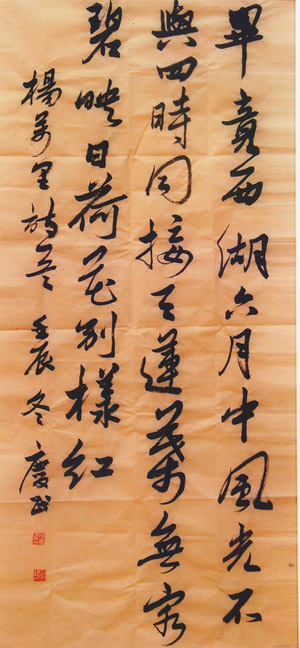 畢竟西湖六月中風光不
與四時同接天蓮葉無窮
碧映日荷花別樣紅
楊萬里詩 壬辰冬 慶